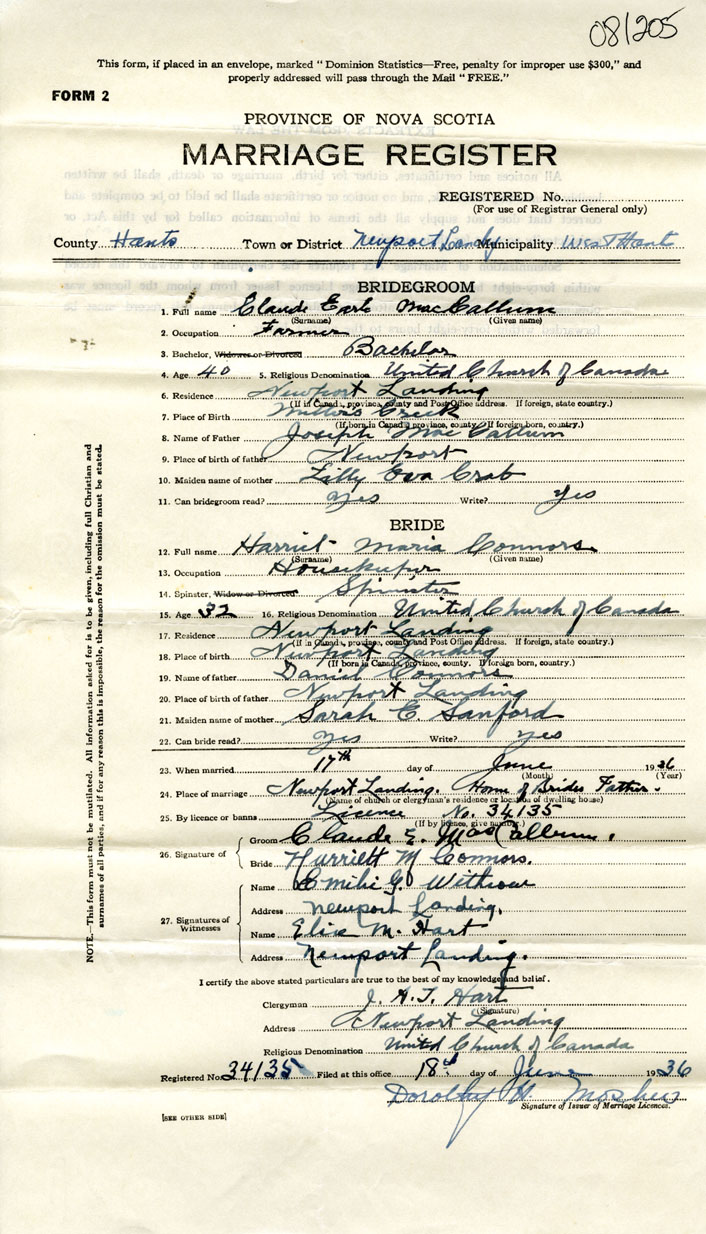 08/205
This form, if placed in an envelope, marked "Dominion Statistics—Free, penalty for improper use $300," and
properly addressed will pass through the Mail "FREE."
FORM 2
PROVINCE OF NOVA SCOTIA
MARRIAGE REGISTER
REGISTERED No.
(For use of Registrar General only)
County Hants Town or District Newport Landg Municipality West Hants
BRIDEGROOM
1. Full name Claude Earle MacCallum
(Surname) (Given name)
2. Occupation Farmer
3. Bachelor, Widower or Divorced Bachelor
4. Age 40 5. Religious Denomination United Church of Canada
6. Residence Newport Landing
(If in Canada, province, county and Post Office address. If foreign, state country.)
7. Place of Birth Millers Creek
(If born in Canada, province, county. If foreign born, country.)
8. Name of Father Joseph MacCallum
9. Place of birth of father Newport
10. Maiden name of mother Lilly Eva Crab
11. Can bridegroom read? Yes Write? Yes
BRIDE
12. Full name Harriet Maria Connors
(Surname) (Given name)
13. Occupation Housekeeper
14. Spinster, Widow or Divorced Spinster
15. Age 32 16. Religious Denomination United Church of Canada
17. Residence Newport Landing
(If in Canada, province, county and Post Office address. If foreign, state country.)
18. Place of birth Newport Landing
(If born in Canada, province, county. If foreign born, country.)
19. Name of father Daniel Connors
20. Place of birth of father Newport Landing
21. Maiden name of mother Sarah E. Sanford
22. Can bride read? Yes Write? Yes
23. When married 17th day of June 1936
(Month) (Year)
24. Place of marriage Newport Landing. Home of Brides Father.
(Name of church or clergyman's residence or location of dwelling house)
25. By licence or banns Licence No. 34135
(If by licence, give number.)
26. Signature of
Groom Claude E. MacCallum.
Bride Harriett M Connors.
27. Signatures of Witnesses
Name Emilie G. Withrow
Address Newport Landing.
Name Elsie M. Hart
Address Newport Landing.
I certify the above stated particulars are true to the best of my knowledge and belief.
Clergyman J. A. T. Hart
(Signature)
Address Newport Landing
Religious Denomination United Church of Canada
Registered No. 34135 Filed at this office 18th day of June 1936
Dorothy W. Mosher
Signature of Issuer of Marriage Licences.
[SEE OTHER SIDE]
NOTE.—This form must not be mutilated. All information asked for is to be given, including full Christian and
surnames of all parties, and if for any reason this is impossible, the reason for the omission must be stated.